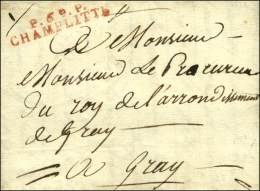 P. 69. P.
CHAMPLITTE
A Monsieur
Monsieur Le Procureur
du roy de l'arrondissement
de Gray
a Gray